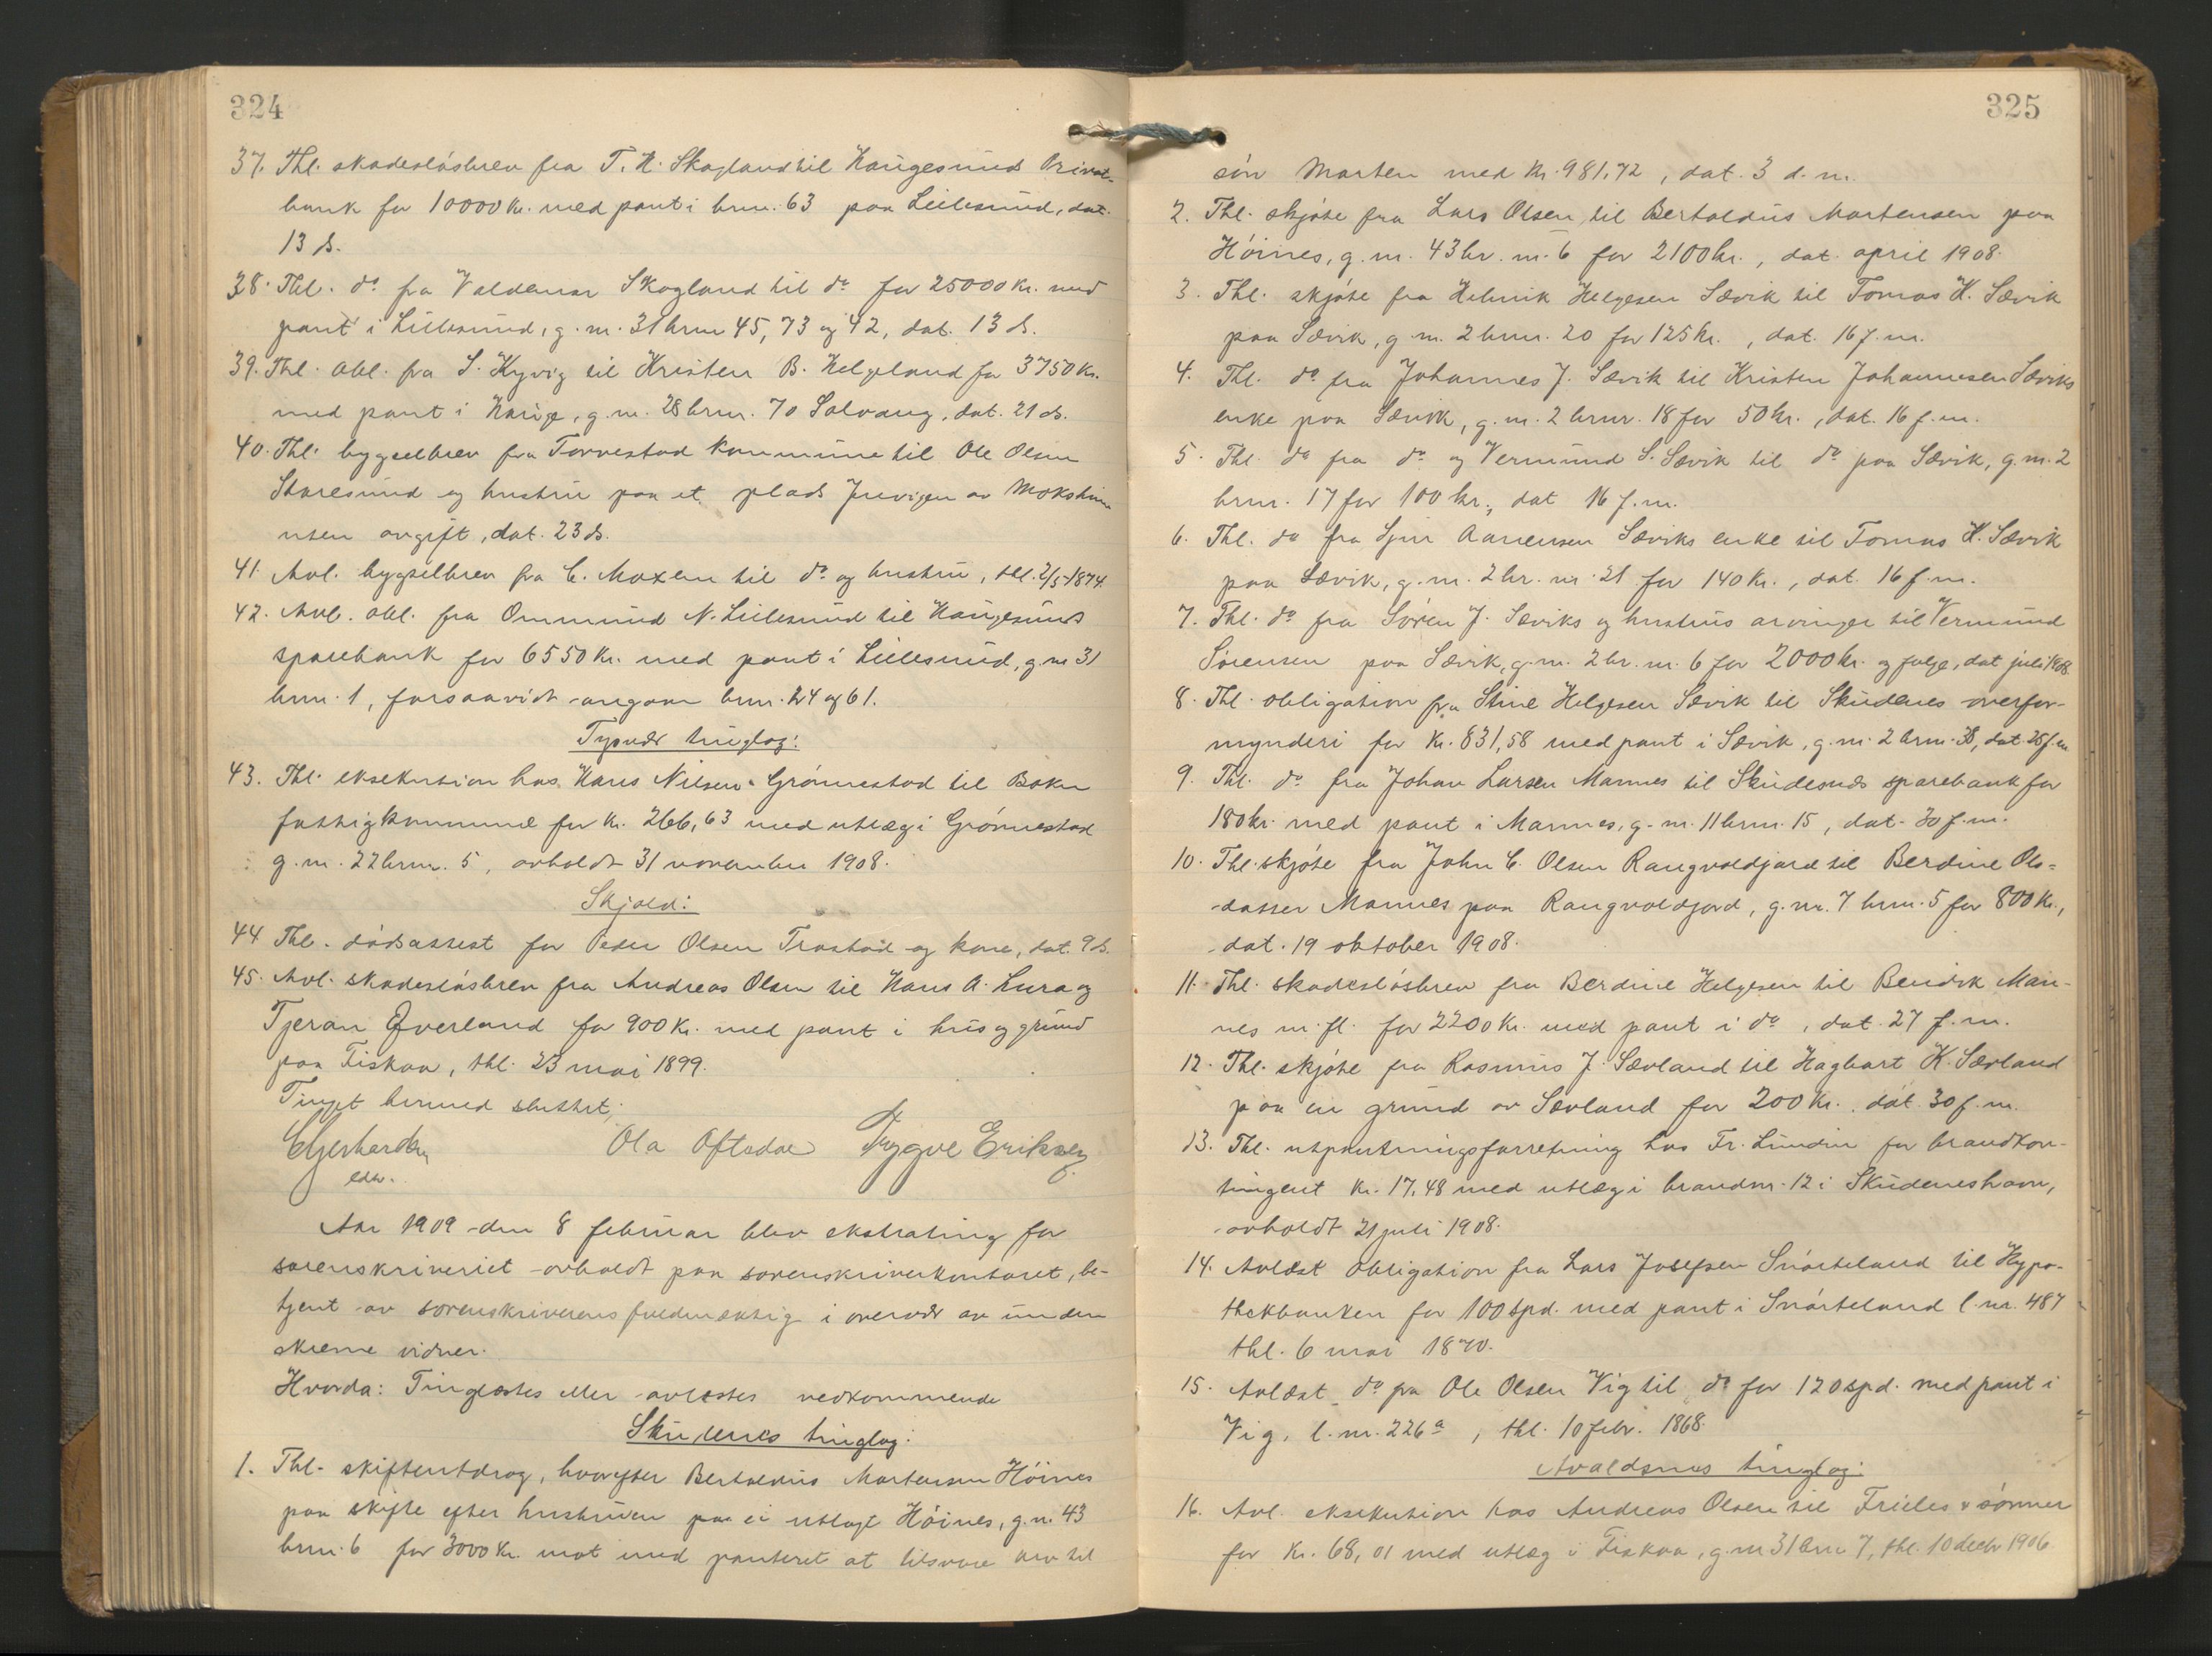 324
37. Thl. skadesløsbrev fra T. H. Skogland til Haugesunds Privat-
bank for 10000 kr. med pant i brnr. 63 paa Lillesund, dat.
13 ds.
38. Thl. do fra Valdemar Skogland til do for 25000 kr. med
pant i Lillesund, g.nr. 31 brnr 45, 73 og 42, dat. 13 ds.
39. Thl. obl. fra S. Kyvig til Kristen B. Helgeland for 3750 kr.
med pant i Hauge, g.nr. 28 brnr. 70 Solvang, dat. 21 ds.
40. Thl. bygselbrev fra Torvestad kommune til Ole Olsen
Storesund og hustru paa et plads av
uten avgift, dat. 23 ds.
41. Avl. bygselbrev fra C. Moxem til do og hustru, thl. 2/5 1874.
42. Avl. obl. fra Ommund N. Lillesund til Haugesunds
sparebank for 6550 kr. med pant i Lillesund, g.nr 31
brnr. 1, forsaavidt angaar brnr. 24 og 61.
Tysvær tinglag:
43. Thl. eksekution hos Hans Nilsen Grønnestad til Bokn
fattigkommune for kr. 266,63 med utlæg i Grønnestad
g.nr. 22 brnr. 5, avholdt 31 november 1908.
Skjold:
44. Thl. dødsattest for Peder Olsen Trostad og kone, dat. 9 ds.
45. Avl. skadesløsbrev fra Andreas Olsen til Hans A. Lura og
Tjeran Øverland for 900 kr. med pant i hus og grund
paa Fiskaa, thl. 23 mai 1899.
Tinget hermed sluttet.
EGerhardsen Ola Oftedal Trygve Eriksen
edsv.
Aar 1909 den 8 februar blev ekstrating for
sorenskriveriet avholdt paa sorenskriverkontoret, be-
tjent av sorenskriverens fuldmægtig i overvær av under
skrevne vidner.
Hvorda: Tinglæstes eller avlæstes vedkommende
Skudenes tinglag:
1. Thl. skifteutdrag, hvorefter Bertoldus Mortensen Høines
paa skifte efter hustruen paa ei utlagt Høines, g.nr. 43
brnr. 6 for 3000 kr. mot med panteret at tilsvare arv til
325
søn Morten med kr. 981,72, dat. 3 d.m.
2. Thl. skjøte fra Lars Olsen til Bertoldus Mortensen paa
Høines, g.nr. 43 br.nr. 6 for 2100 kr., dat. april 1908.
3. Thl. skjøte fra Helmik Helgesen Sævik til Tomas H. Sævik
paa Sævik, g.nr. 2 brnr. 20 for 125 kr., dat. 16 f.m.
4. Thl. do fra Johannes J. Sævik til Kristen Johannesen Sæviks
enke paa Sævik, g.nr. 2 brnr. 18 for 50 kr., dat. 16 f.m.
5. Thl. do fra do og Vermund S. Sævik til do paa Sævik, g.nr. 2
brnr. 17 for 100 kr., dat 16 f.m.
6. Thl. do fra Aanensen Sæviks enke til Tomas H. Sævik
paa Sævik, g.nr. 2 br.nr. 21 for 140 kr., dat. 16 f.m.
7. Thl. do fra Søren J. Sæviks og hustrus arvinger til Vermund
Sørensen paa Sævik, g.nr. 2 br.nr. 6 for 2000 kr. og følge, dat juli 1908.
8. Thl. obligation fra Stine Helgesen Sævik til Skudenes overfor-
mynderi for kr. 831,58 med pant i Sævik, g.nr. 2 brnr. 38, dat. 26 f.m.
9. Thl. do fra Johan Larsen Mannes til Skudesnæs sparebank for
180 kr. med pant i Mannes, g.nr. 11 brnr. 15, dat. 30 f.m.
10. Thl. skjøte fra John C. Olsen Rangvoldjord til Berdine Ols-
datter Mannes paa Rangvoldjord, g.nr. 7 brnr. 5 for 800 kr.,
dat. 19 oktober 1908.
11. Thl. skadesløsbrev fra Berdine Helgesen til Bendik Man-
nes m.fl. for 2200 kr. med pant i do, dat. 27 f.m.
12. Thl. skjøte fra Rasmus J. Sævland til Hagbart K. Sævland
paa en grund av Sævland for 200 kr., dat. 30 f.m.
13. Thl. utpantningsforretning hos Fr. Lundin for brandkon-
tingent kr. 17,48 med utlæg i brandnr. 12 i Skudeneshavn,
avholdt 21 juli 1908.
14. Avlæst obligation fra Lars Josefsen Snørteland til Hypo-
thekbanken for 100 spd. med pant i Snørteland l.nr. 487
thl. 6 mai 1870.
15. Avlæst do fra Ole Olsen Vig til do for 120 spd. med pant i
Vig, l.nr. 226a, thl. 10 febr. 1868.
Avaldsnes tinglag:
16. Avl. eksekution hos Andreas Olsen til Frieles & sønner
for kr. 68,01 med utlæg i Fiskaa, g.nr 31 brnr 7, thl. 10 decbr 1906